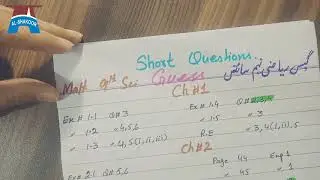 AL-SHAKOOR
Short Questions
گیس ریاضی نہم سائنس
Math 9th Sci Guess
Ch#1
Ex# 1.1 Q#3
" 1.2 " 4,5,6
" 1.3 " 4,5(i,ii,iii)
Ex# 1.4 Q#2,3,4
" 1.5 " 3
R.E " 3,4(i,ii),5
Ch#2
Ex# 2.1 Q#5,6
Page 44 Exp 1
" 45 " 1